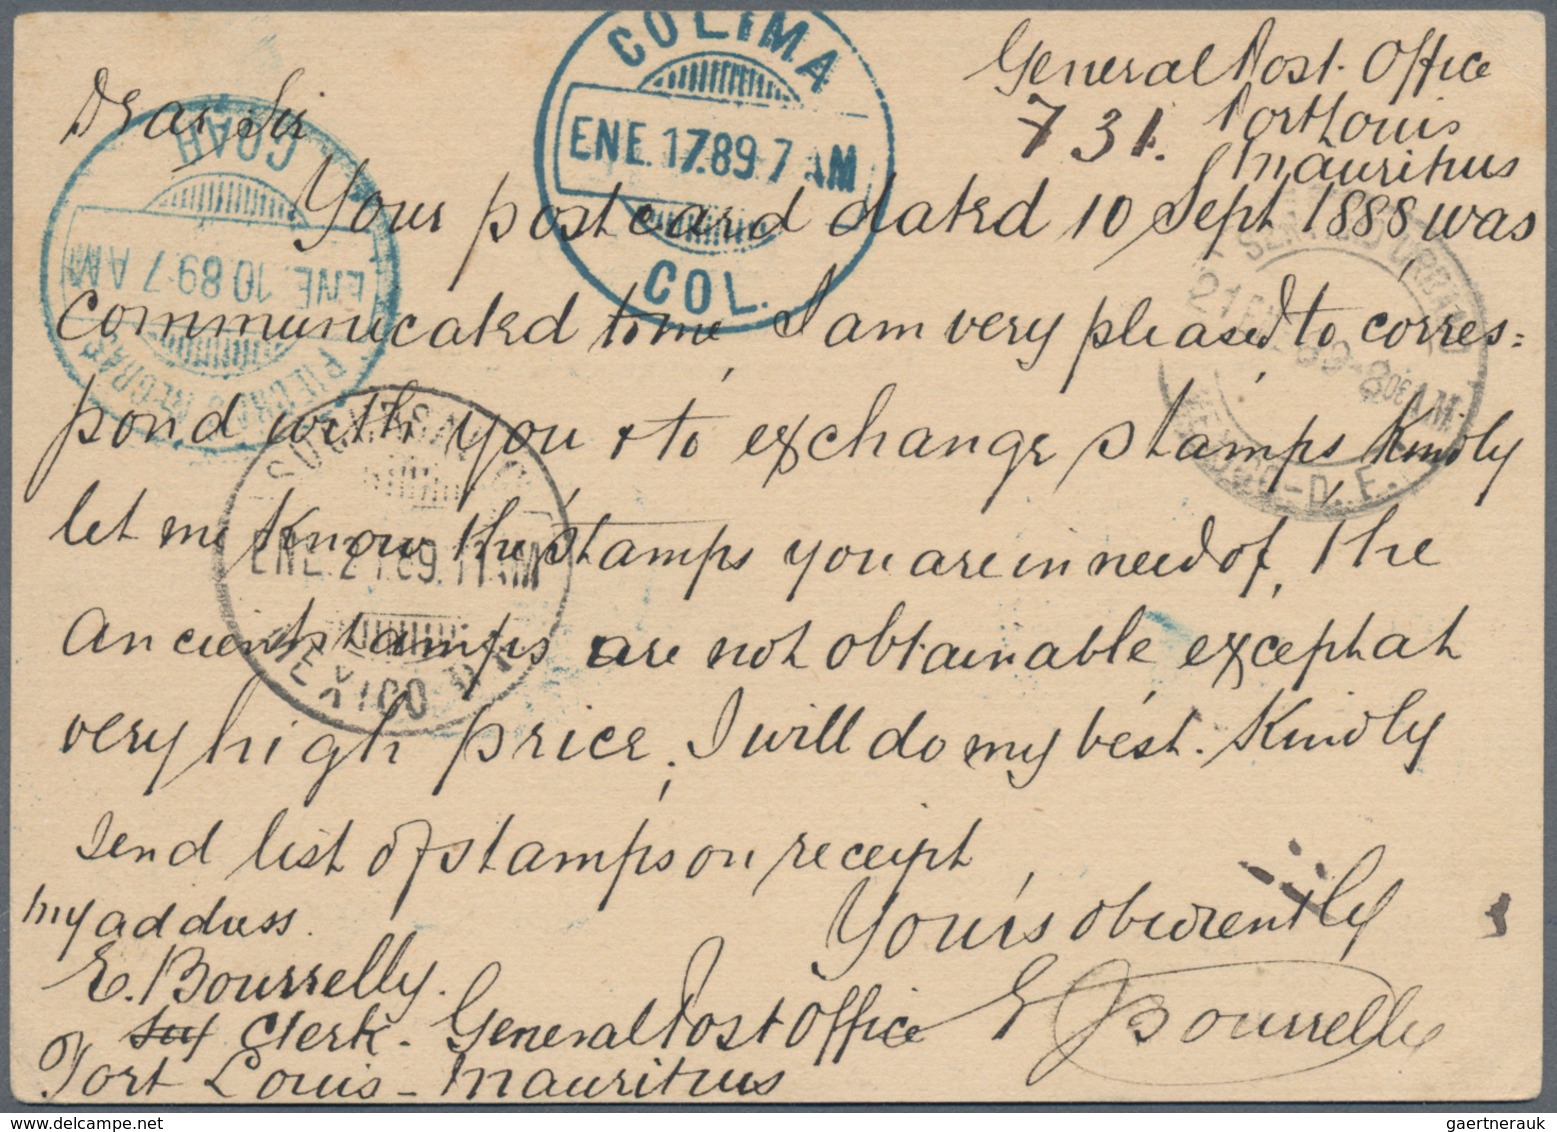 General Post Office
731. Port Louis
Mauritius
Dear Sir
Your post card dated 10 Sept 1888 was
communicated to me I am very pleased to corres=
pond with you & to exchange stamps Kindly
let me Know the stamps you are in need of, the
ancient stamps are not obtainable except at
very high price, I will do my best. Kindly
send list of stamps on receipt
Yours obediently
E Bourrelly
my address.
E. Bourrelly.
Clerk. General Post Office
Port Louis - Mauritius
COLIMA
ENE. 17. 89. 7 AM
COL.
PIEDRAS NEGRAS
ENE. 10. 89. 7 AM
COAH
ENE. 21. 89. 11 AM
MEXICO D.
URBANO
21 89-8 AM
MEXICO-D.F.
gaertnerauk @ delcampe.net